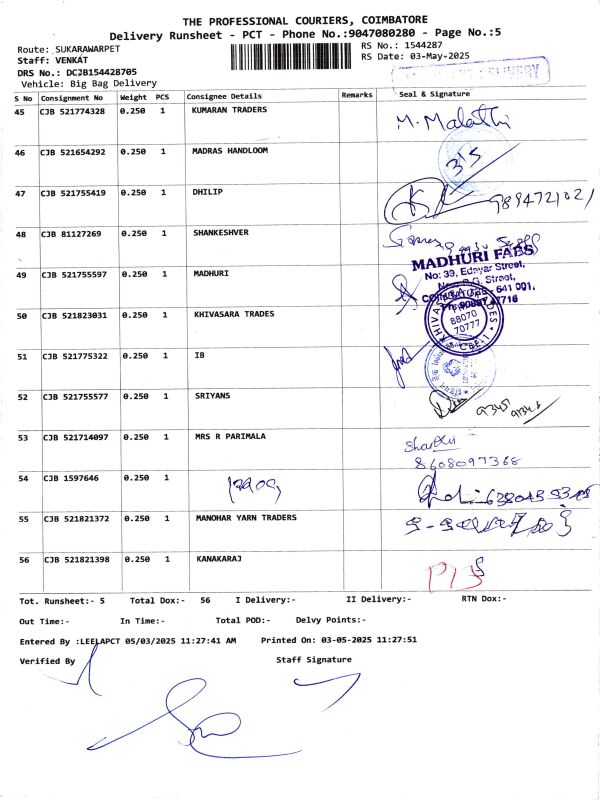 THE PROFESSIONAL COURIERS, COIMBATORE
Delivery Runsheet - PCT - Phone No.:9047080280 - Page No.:5
Route: SUKARAWARPET
RS No.: 1544287
Staff: VENKAT
RS Date: 03-May-2025
DRS No.: DCJB154428705
Vehicle: Big Bag Delivery
S No Consignment No Weight PCS Consignee Details Remarks Seal & Signature
45 CJB 521774328 0.250 1 KUMARAN TRADERS M. Malathi
46 CJB 521654292 0.250 1 MADRAS HANDLOOM 3/5
47 CJB 521755419 0.250 1 DHILIP 9894721021
48 CJB 81127269 0.250 1 SHANKESHVER
MADHURI FABS
No: 39, Edayar Street,
49 CJB 521755597 0.250 1 MADHURI
50 CJB 521823031 0.250 1 KHIVASARA TRADES
88070
70777
CBE-1
51 CJB 521775322 0.250 1 IB
52 CJB 521755577 0.250 1 SRIYANS
53 CJB 521714097 0.250 1 MRS R PARIMALA
8608097368
54 CJB 1597646 0.250 1
55 CJB 521821372 0.250 1 MANOHAR YARN TRADERS
56 CJB 521821398 0.250 1 KANAKARAJ
Tot. Runsheet:- 5 Total Dox:- 56 I Delivery:- II Delivery:- RTN Dox:-
Out Time:- In Time:- Total POD:- Delvy Points:-
Entered By :LEELAPCT 05/03/2025 11:27:41 AM Printed On: 03-05-2025 11:27:51
Verified By Staff Signature